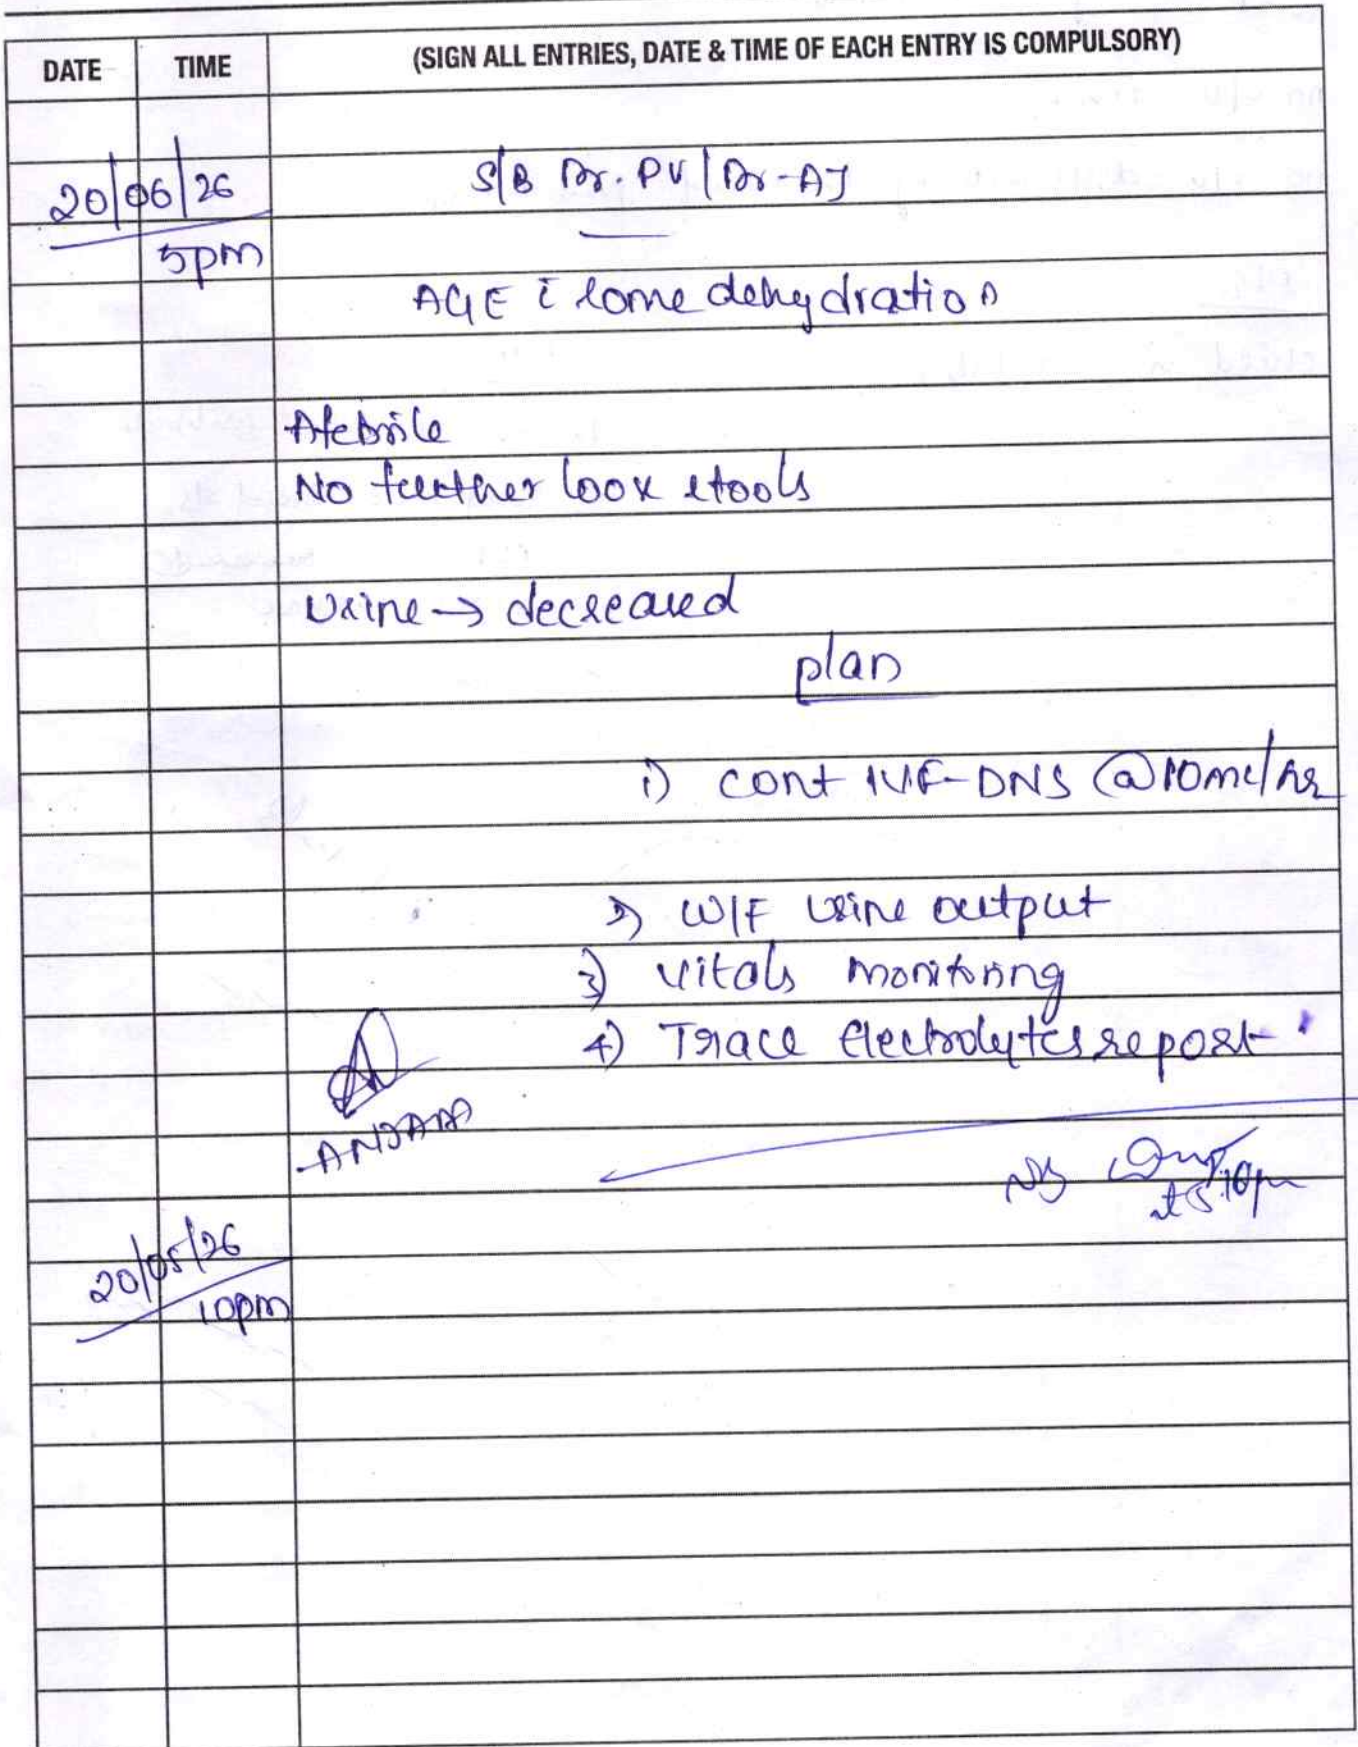 DATE TIME (SIGN ALL ENTRIES, DATE & TIME OF EACH ENTRY IS COMPULSORY)
20/06/26 S/B Dr. PV / Dr. AJ
5pm
AGE c̄ some dehydration
Afebrile
No further loose stools
Urine → decreased
plan
1) cont IVF-DNS @10ml/hr
2) W/F urine output
3) vitals monitoring
4) Trace Electrolytes report
at 5:10pm
20/05/26
10pm